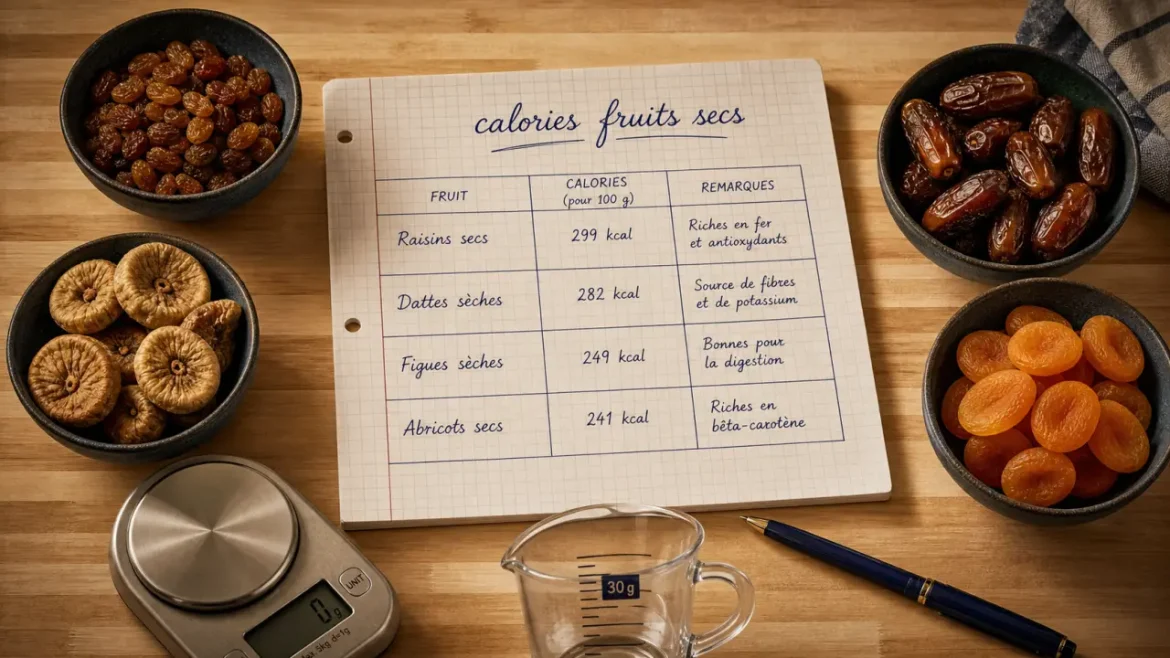 calories fruits secs
FRUIT
CALORIES
(pour 100 g)
REMARQUES
Raisins secs
299 kcal
Riches en fer
et antioxydants
Dattes sèches
282 kcal
Source de fibres
et de potassium
Figues sèches
249 kcal
Bonnes pour
la digestion
Abricots secs
241 kcal
Riches en
bêta-carotène
30 g
UNIT
0 g
5kg d=1g